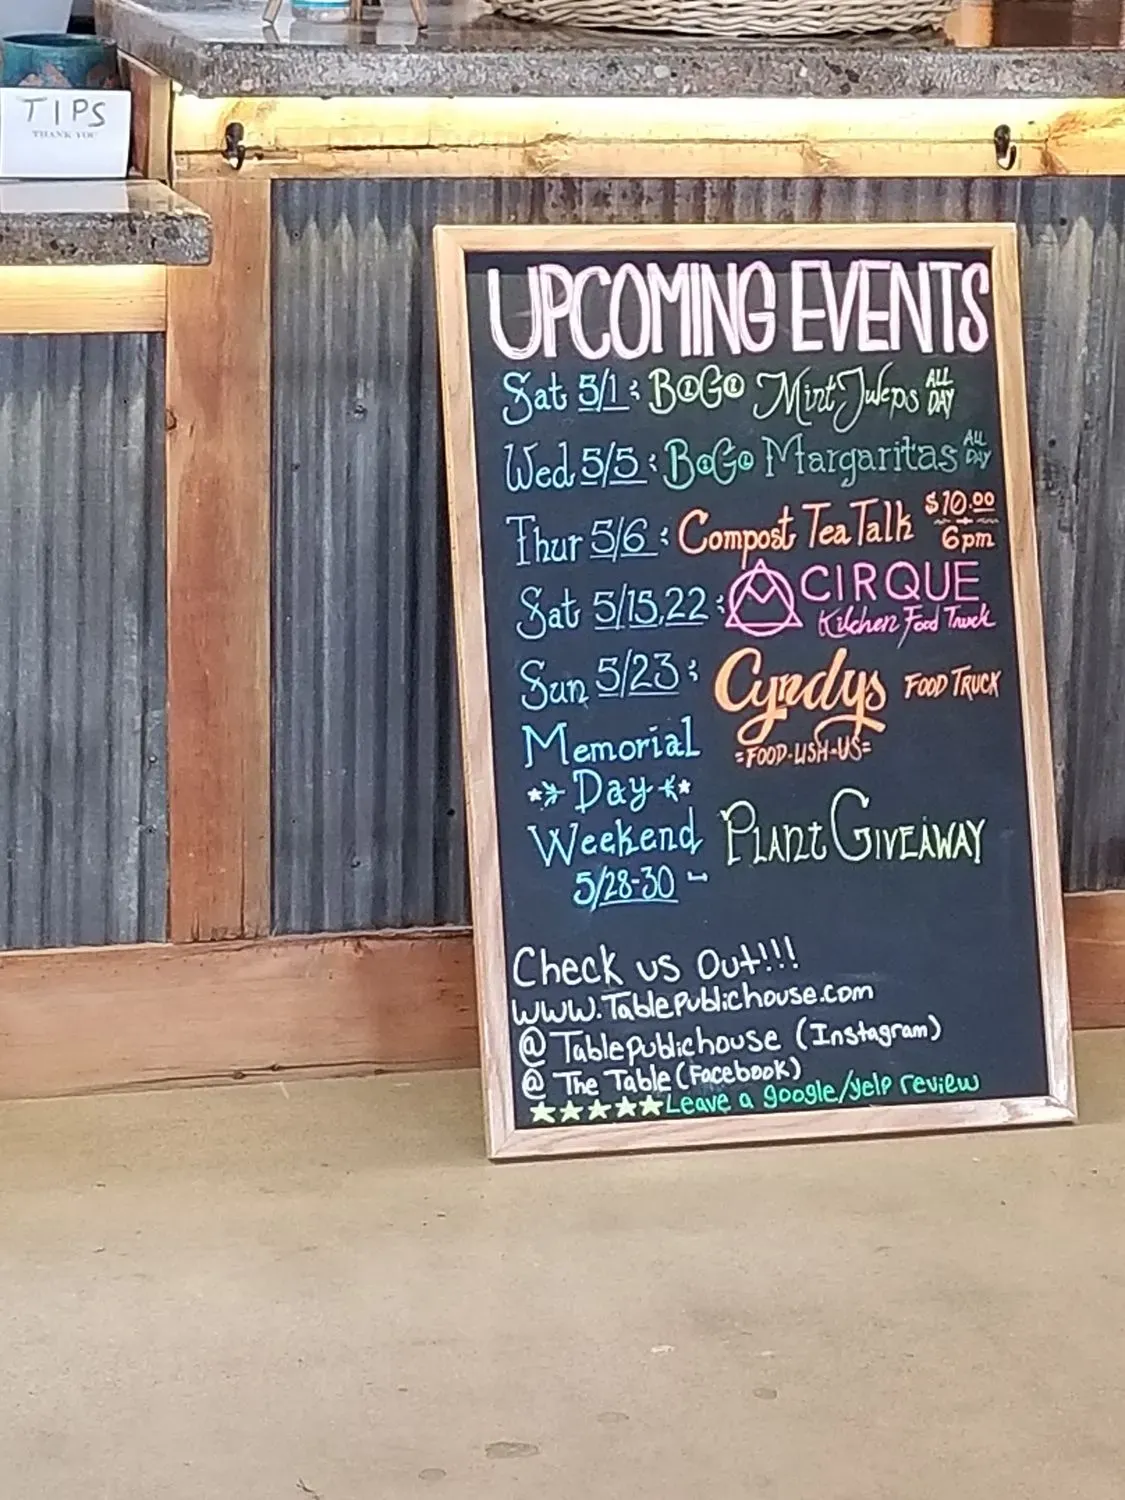 TIPS
THANK YOU
UPCOMING EVENTS
Sat 5/1: BOGO Mint Juleps ALL DAY
Wed 5/5: BOGO Margaritas ALL DAY
Thur 5/6: Compost Tea Talk $10.00 6pm
Sat 5/15,22: CIRQUE
Kitchen Food Truck
Sun 5/23: Cyndys FOOD TRUCK
=FOOD-LISH-US=
Memorial
Day
Weekend PLANT GIVEAWAY
5/28-30
Check us Out!!!
www.Tablepublichouse.com
@ Tablepublichouse (Instagram)
@ The Table (Facebook)
★★★★★Leave a google/yelp review